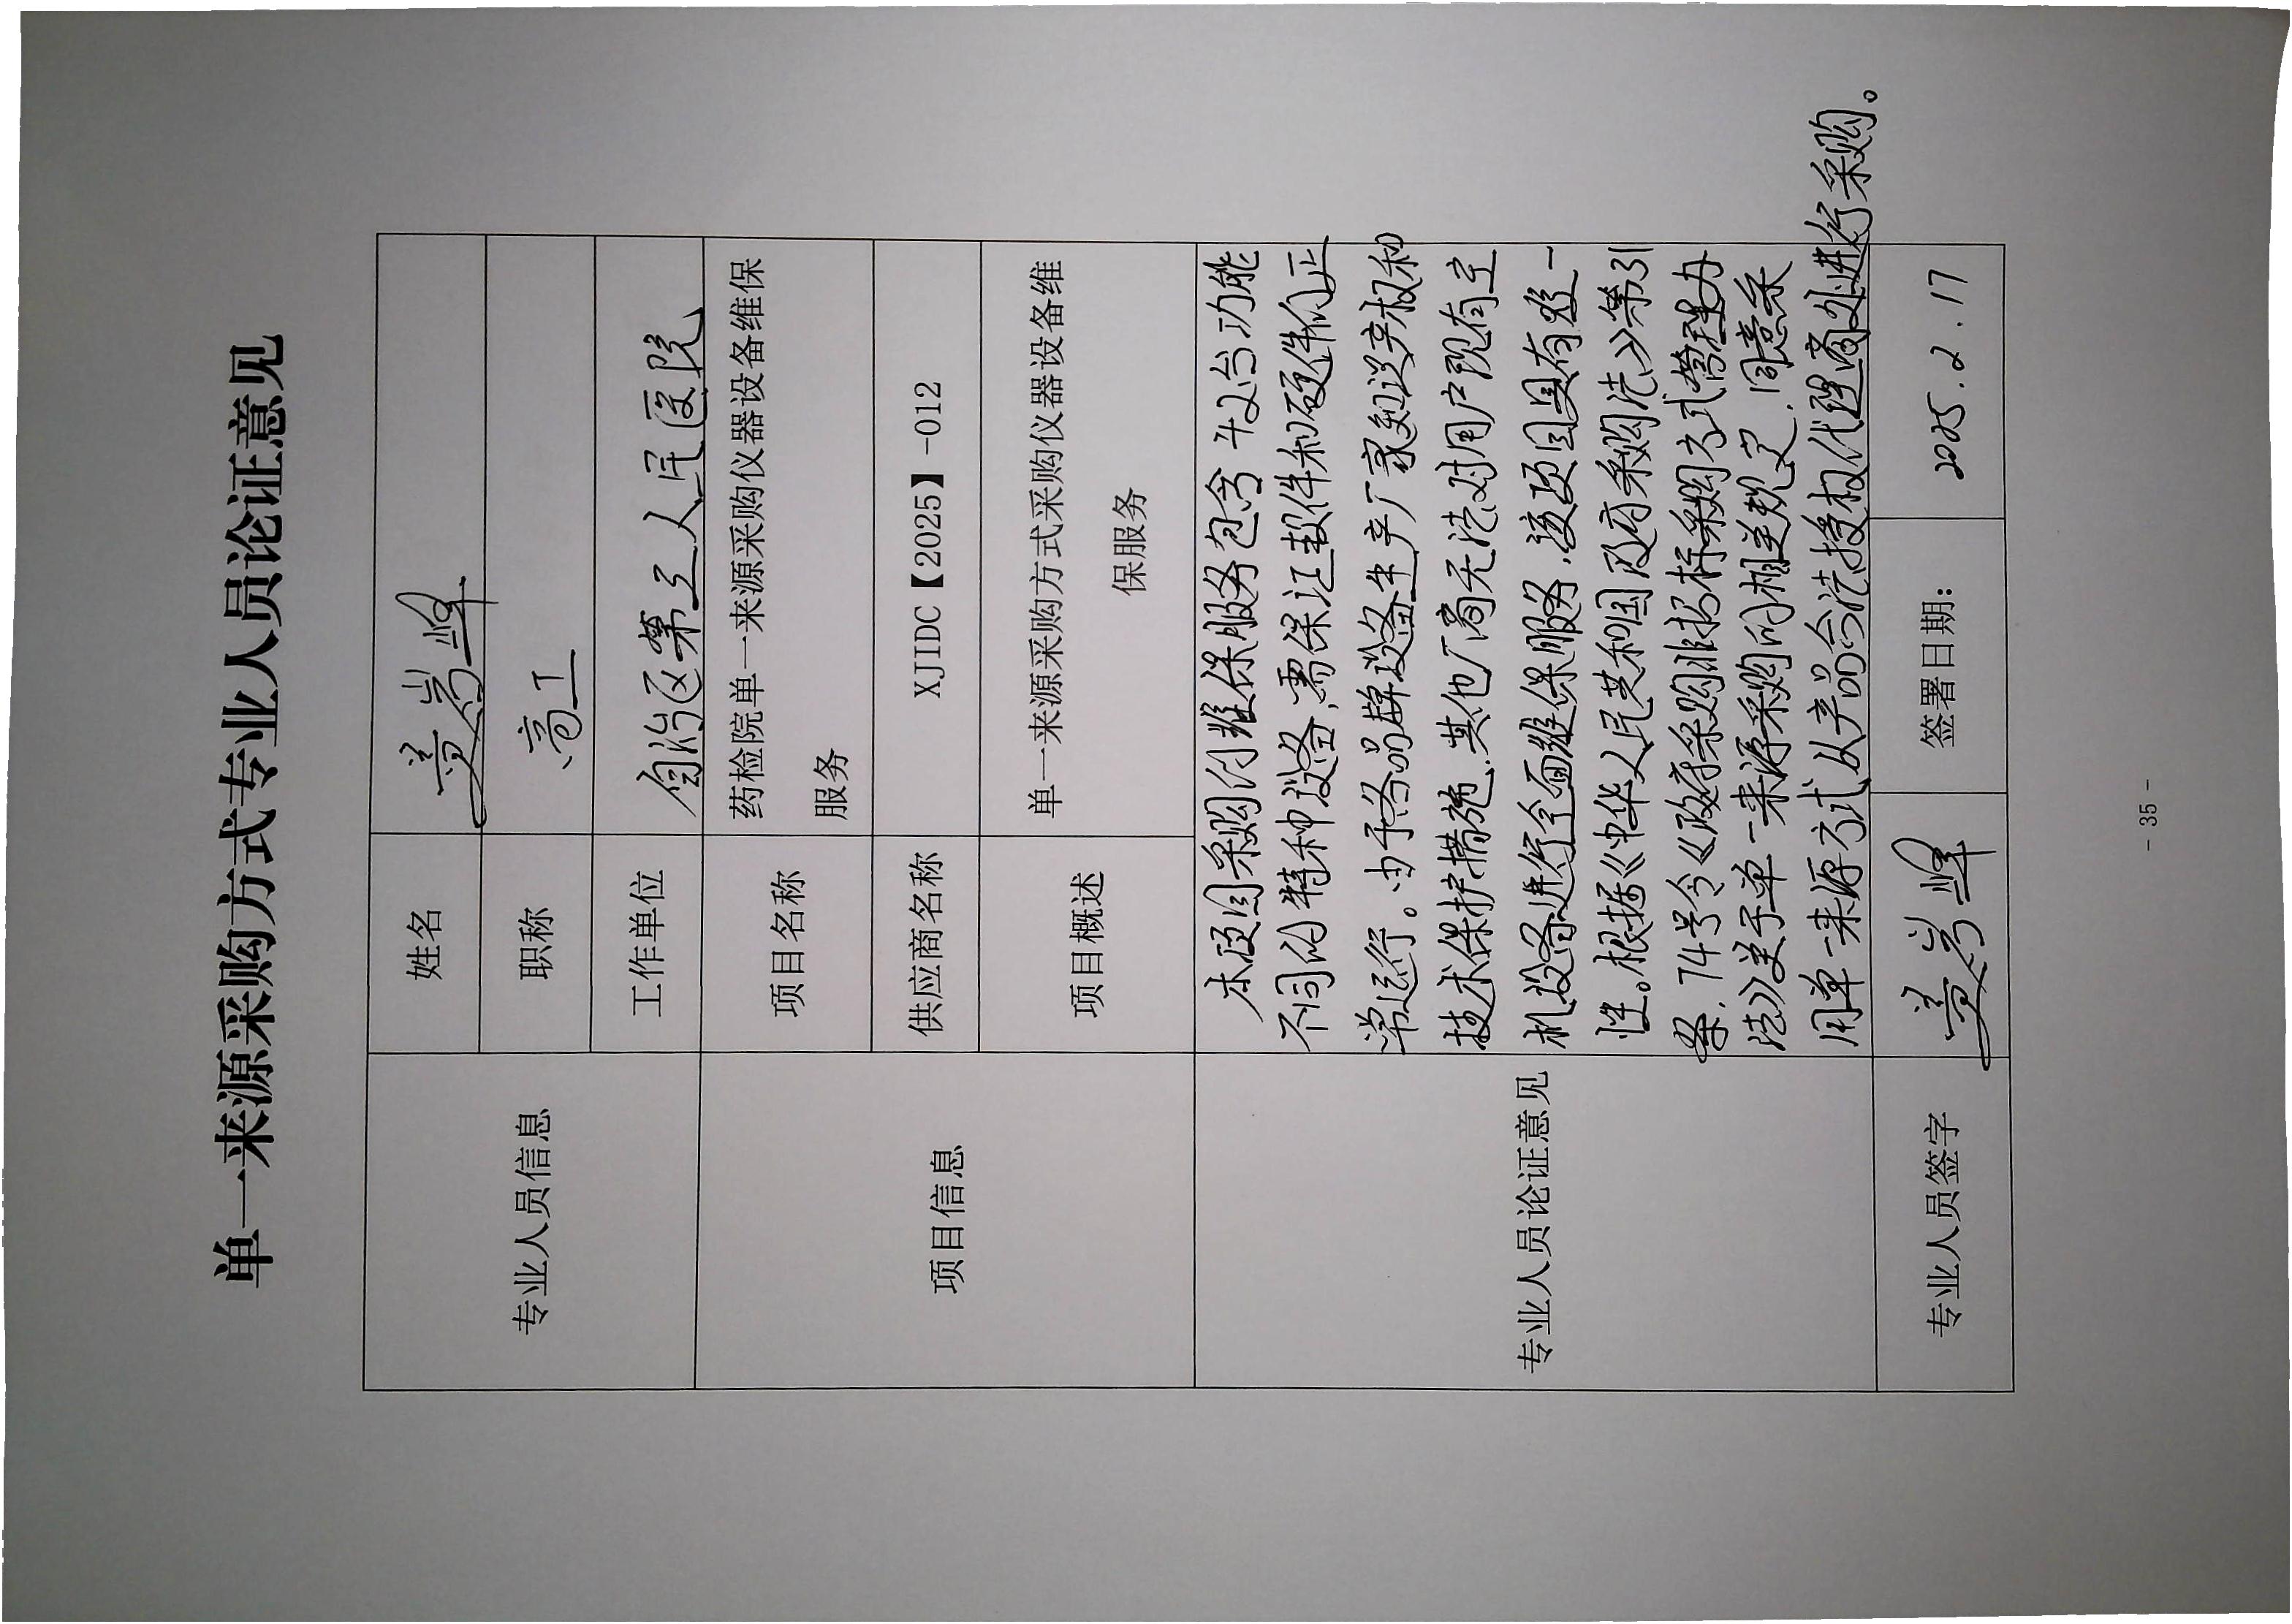 单一来源采购方式专业人员论证意见
专业人员信息
姓名
姜岩峰
职称
高工
工作单位
自治区第三人民医院
项目信息
项目名称
药检院单一来源采购仪器设备维保
服务
供应商名称
XJIDC【2025】-012
项目概述
单一来源采购方式采购仪器设备维
保服务
专业人员论证意见
本项目采购的维保服务包含 台功能
不同的特种设备,需保证软件和硬件的正
常运行。由于各品牌设备生产厂家知识产权和
技术保护措施,其他厂商无法对用户现有主
机设备进行全面维保服务,该项目具有唯一
性。根据《中华人民共和国政府采购法》第31
条,74号令《政府采购非招标采购方式管理办
法》关于单一来源采购的相关规定,同意采
用单一来源方式从产品合法授权代理商处进行采购。
专业人员签字
姜岩峰
签署日期:
2025.2.17
- 35 -